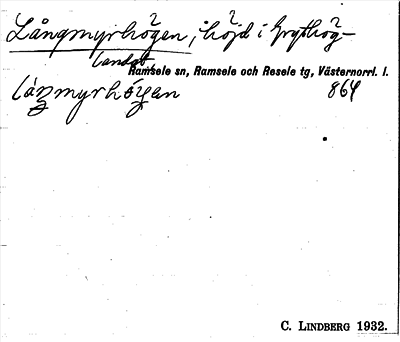 Långmyrhögen, höjd i Grythög-
landet
Ramsele sn, Ramsele och Resele tg, Västernorrl. l.
låŋmyrhö́gen 864
C. LINDBERG 1932.